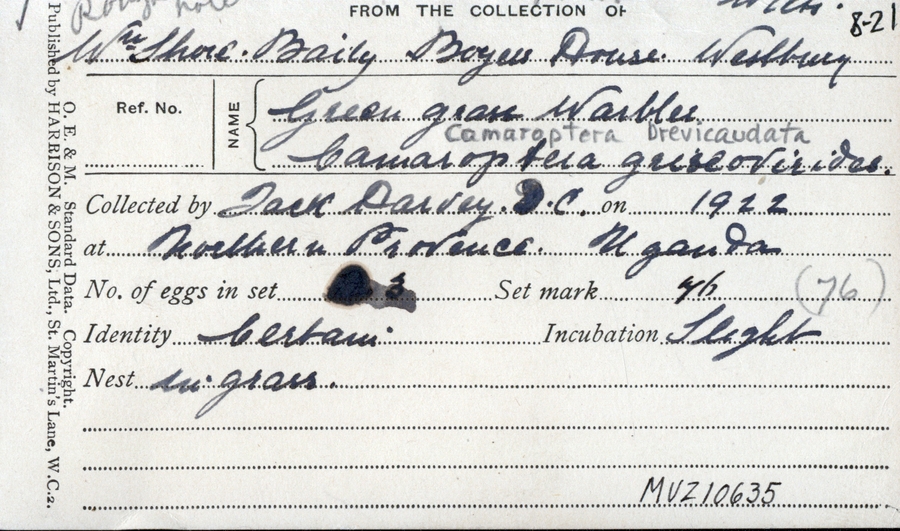 FROM THE COLLECTION OF
8-21
Wm Shore. Baily Boyers House. Westbury
Ref. No.
NAME
Green gran Warbler
Camaroptera brevicaudata
Camaroptera griseovirides.
Collected by Jack Darvey. D.C. on 1922
at Northern Provence. Uganda
No. of eggs in set 3 Set mark 7/6 (76)
Identity Certain Incubation Slight
Nest in grass.
MVZ10635
O. E. & M. Standard Data. Copyright.
Published by HARRISON & SONS, Ltd., St. Martin's Lane, W.C.2.